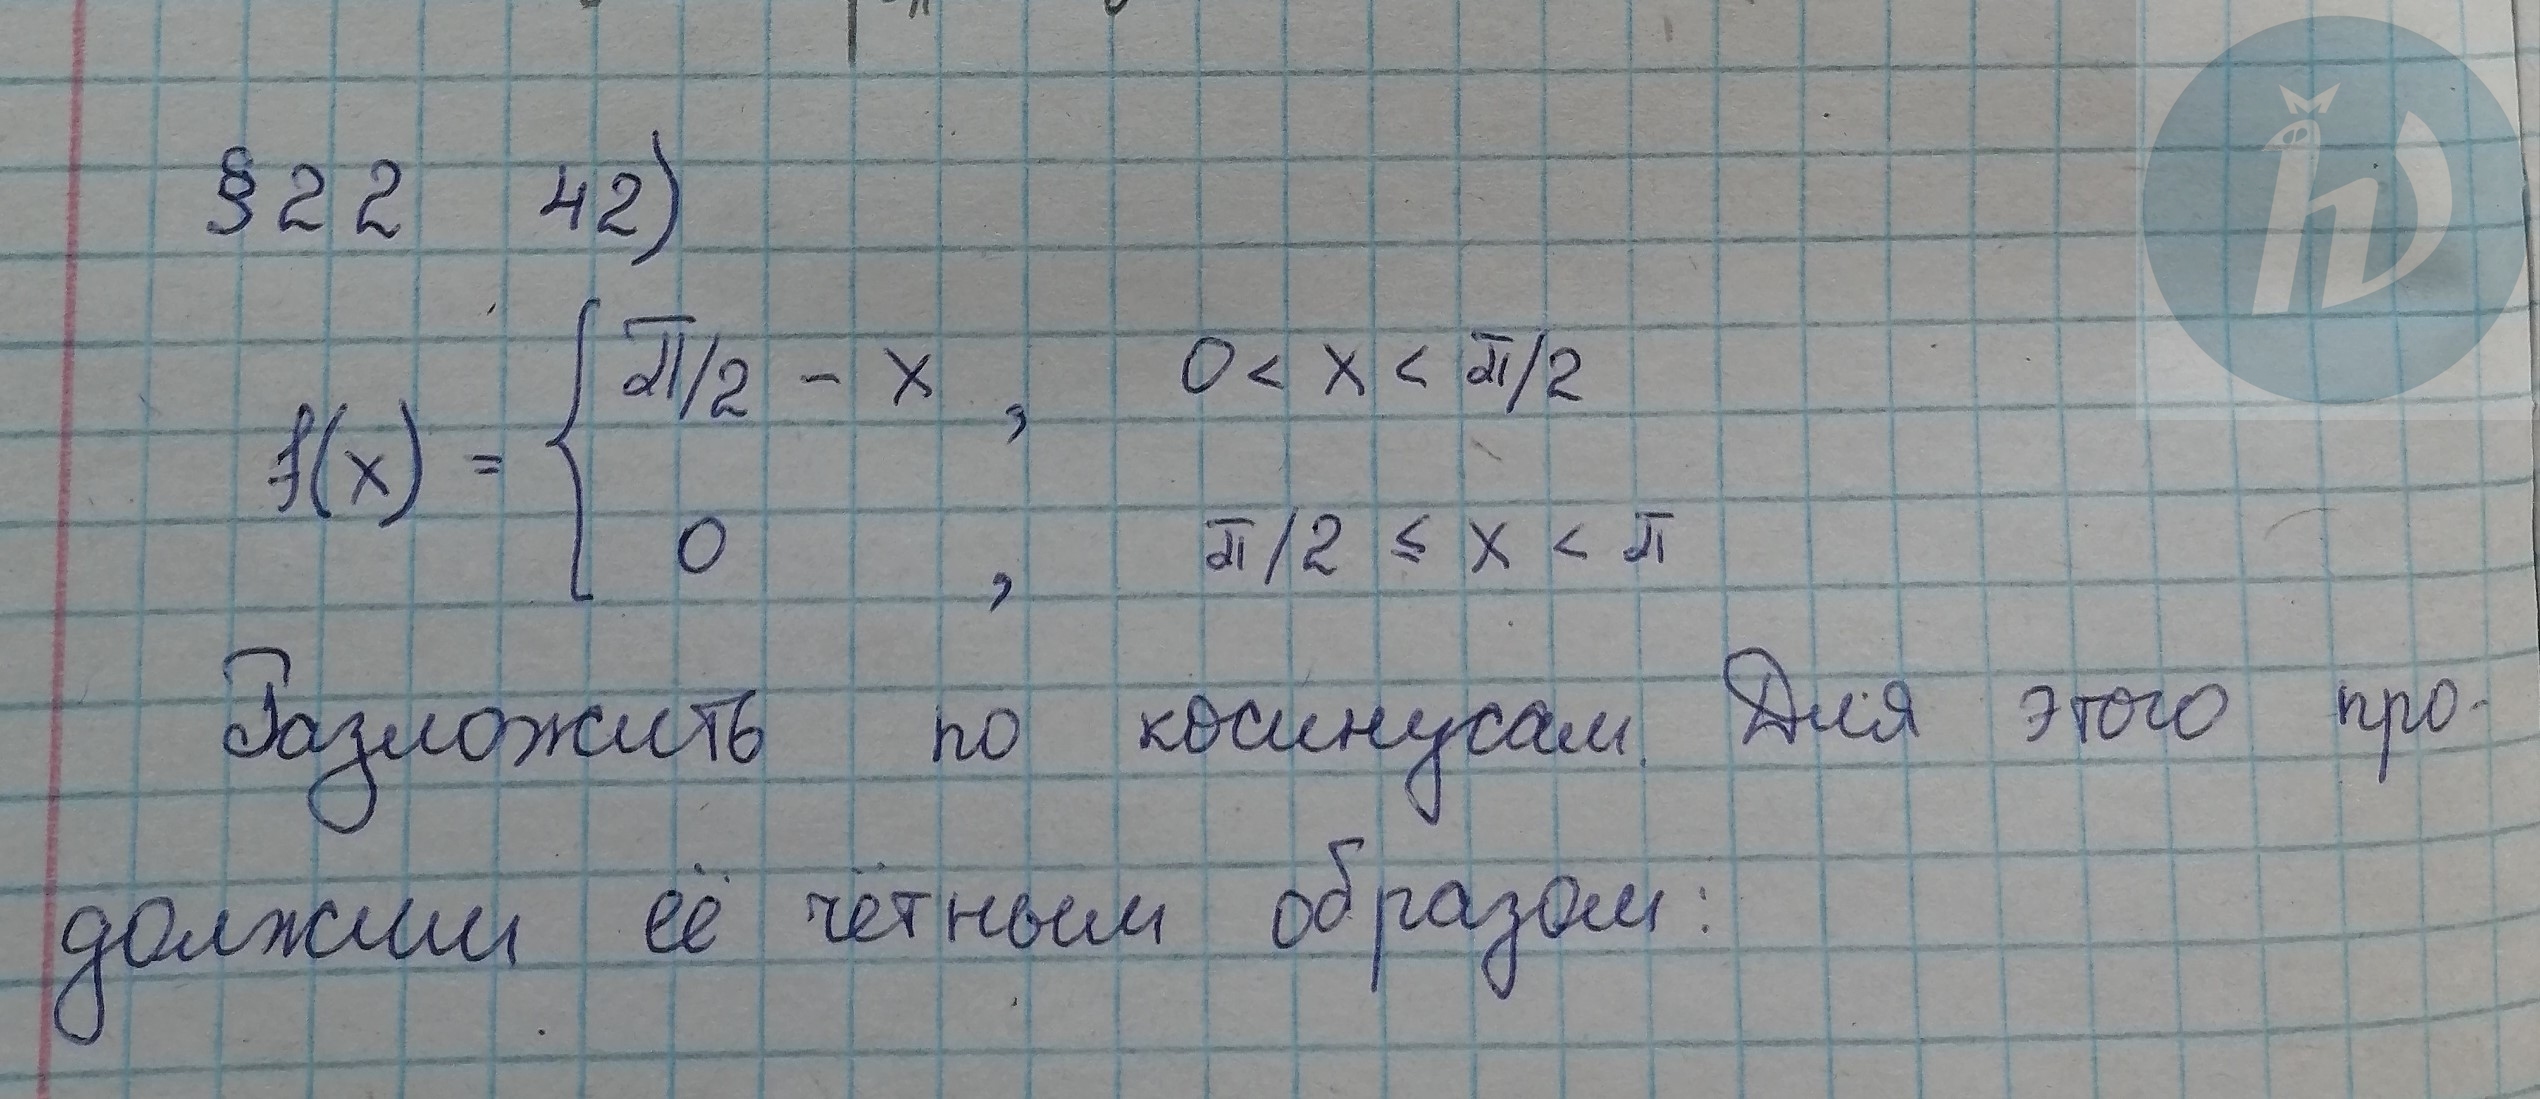 §22 42)
f(x) = { π/2 - x , 0 < x < π/2
0 , π/2 ≤ x < π
Разложить по косинусам. Для этого про-
должим её чётным образом: